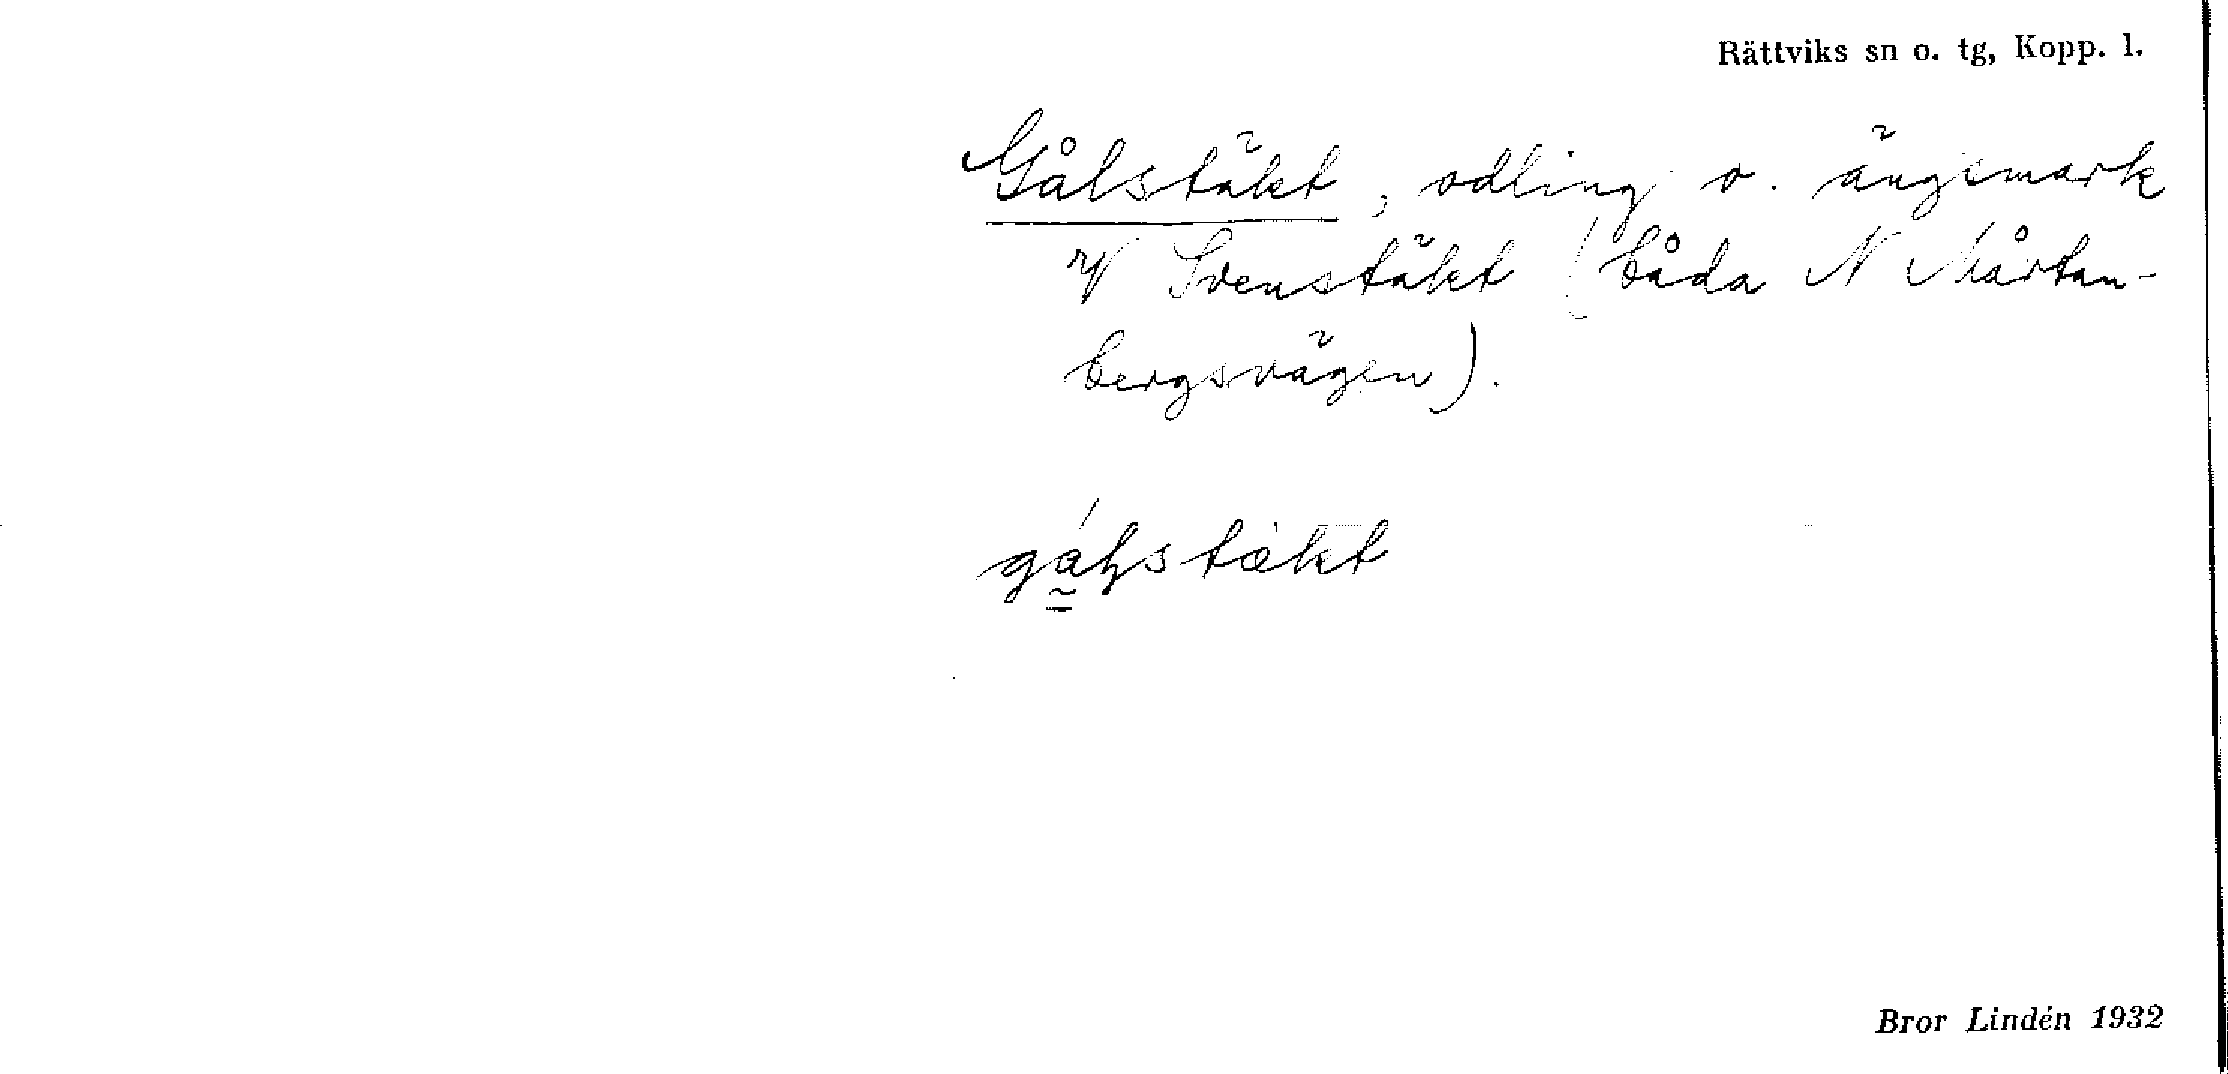 Rättviks sn o. tg, Kopp. l.
Gålstäkt, odling o. ängsmark
V Svenstäkt (båda N Mårtan-
bergsvägen).
Bror Lindén 1932